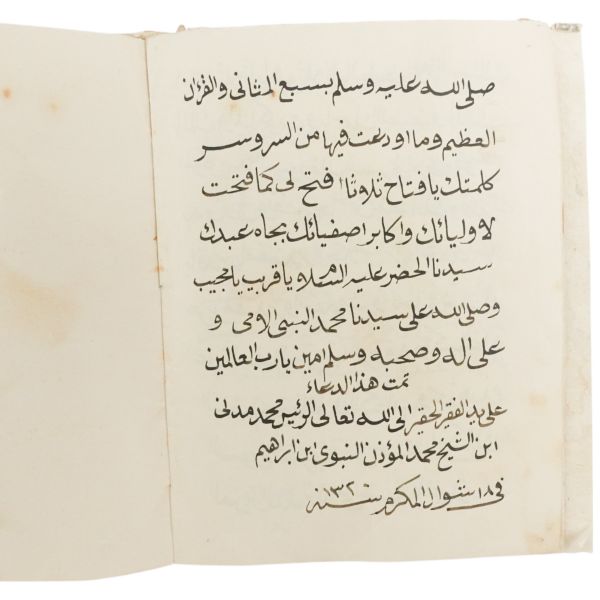 صلى الله عليه وسلم بسبع المثاني والقرءان
العظيم وما اودعت فيها من السر وسر
كلمتك يا فتاح ثلاوثا افتح لى كما فتحت
لاوليائك واكابر اصفيائك بجاه عبدك
سيدنا الخضر عليه السلام يا قريب يا مجيب
وصلى الله على سيدنا محمد النبي الامى و
على اله وصحبه وسلم امين يا رب العالمين
تمت هذا الدعاء
على يد الفقير الحقير الى الله تعالى الرئيس محمد مدنى
ابن الشيخ محمد المؤذن النبوى ابن ابراهيم
فى ١٨ شوال المكرم سنه ١٣٢٠